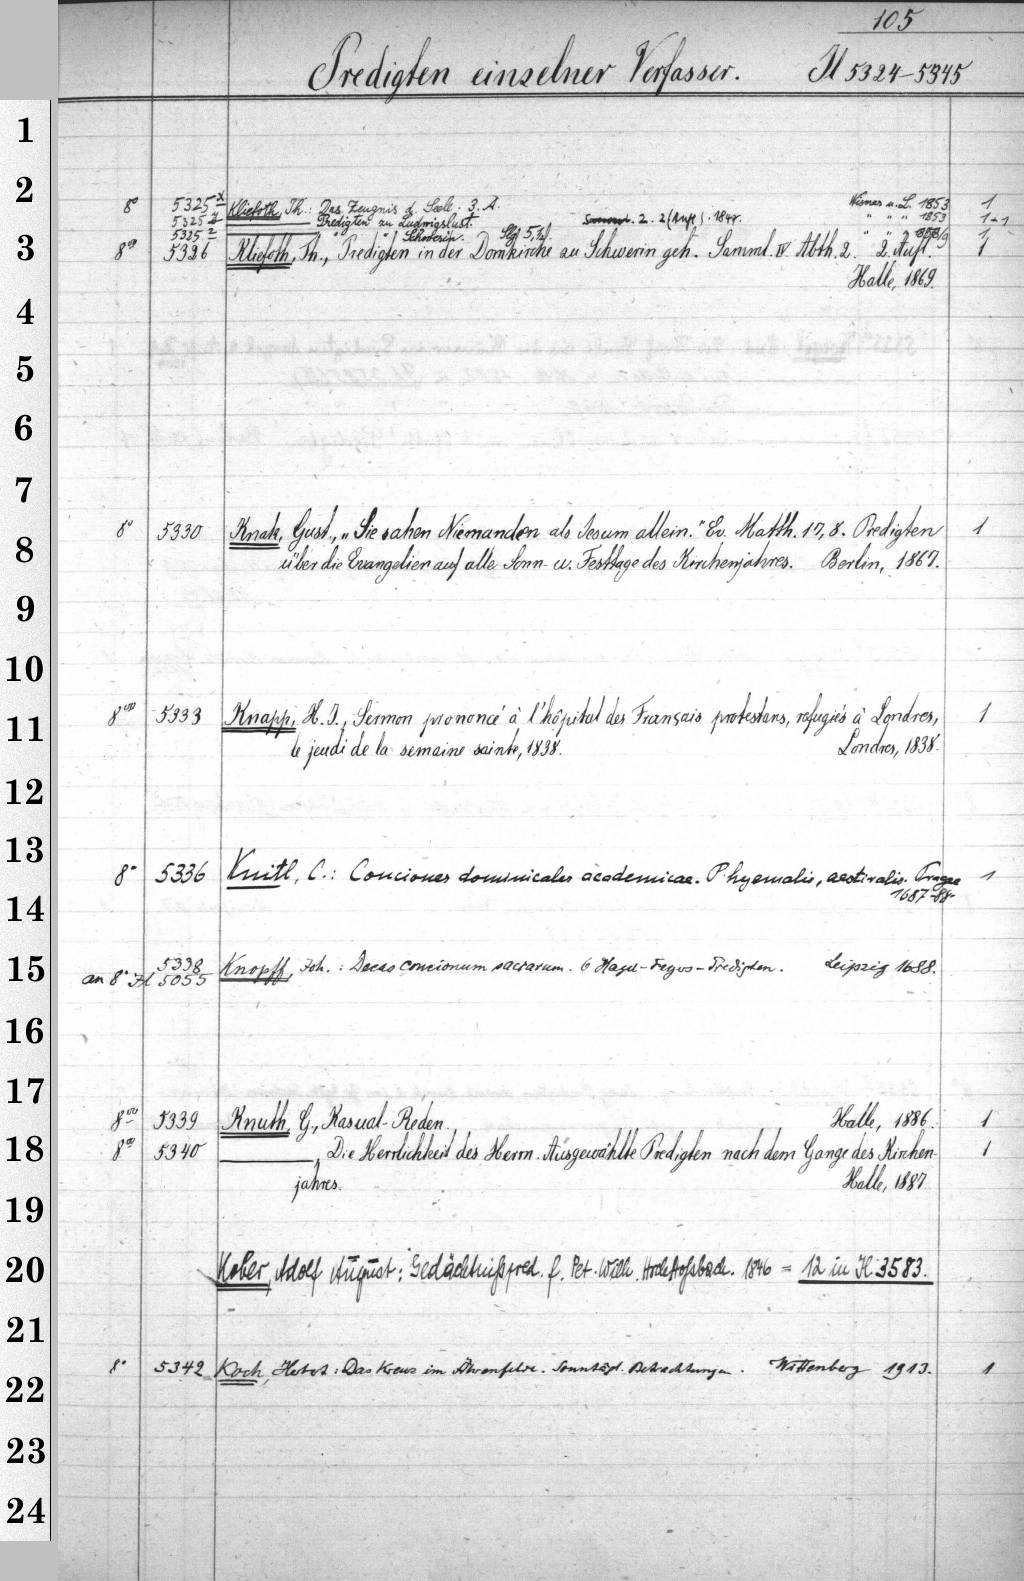 105
Predigten einzelner Verfasser. Il 5324-5345
1
2
8° 5325 x Kliefoth, Th.: Das Zeugnis d. Seele. 3. A. Wismar u. L. 1853 1
5325 y Predigten zu Ludwigslust. 2. 2 (Aufl.) 1844. " " " 1853 1-1
5325 z " " Schwerin. 5,1 " " " 1
3
8° 5326 Kliefoth, Th., Predigten in der Domkirche zu Schwerin geh. Samml. IV. Abth. 2. 2. Aufl. 1
Halle, 1869.
4
5
6
7
8° 5330 Knak, Gust., „Sie sahen Niemanden als Jesum allein." Ev. Matth. 17, 8. Predigten 1
8
über die Evangelien auf alle Sonn- u. Festtage des Kirchenjahres. Berlin, 1867.
9
10
8° 5333 Knapp, H. J., Sermon prononcé à l'hôpital des Français protestans, refugiés à Londres, 1
11
le jeudi de la semaine sainte, 1838. Londres, 1838.
12
13
8° 5336 Knitl, C.: Conciones dominicales academicae. P. hyemalis, aestivalis. Pragae 1
1687-88.
14
15
5338 Knopff, Joh.: Decas concionum sacrarum. 6 Hagel-Fegos-Predigten. Leipzig 1688.
an 8° Il 5055
16
17
8° 5339 Knuth, G., Kasual-Reden. Halle, 1886. 1
18
8° 5340 ———, Die Herrlichkeit des Herrn. Ausgewählte Predigten nach dem Gange des Kirchen- 1
jahres. Halle, 1887.
19
20
Kober, Adolf August: Gedächtnißpred. f. Pet. Wilh. 1846 = 12 in Il 3583.
21
8° 5342 Koch, Herbert: Das Kreuz im Ährenfelde. Sonntägl. Betrachtungen. Wittenberg 1913. 1
22
23
24